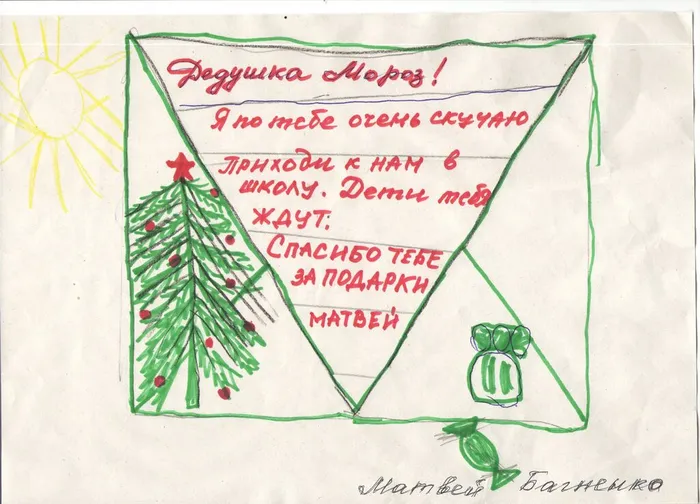 Дедушка Мороз!
Я по тебе очень скучаю
Приходи к нам в
школу. Дети тебя
ждут.
Спасибо тебе
за подарки
Матвей
Матвей Багненко